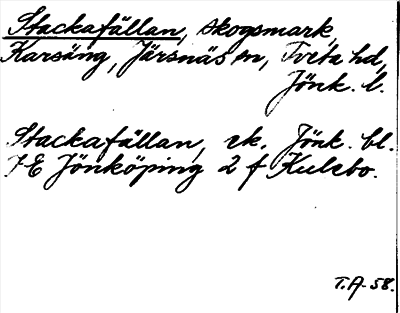 Stackafällan, skogsmark,
Karsäng, Järsnäs sn, Tveta hd,
Jönk. l.
Stackafällan, ek. Jönk. bl.
7E Jönköping 2 f Kulebo.
T.A-58.